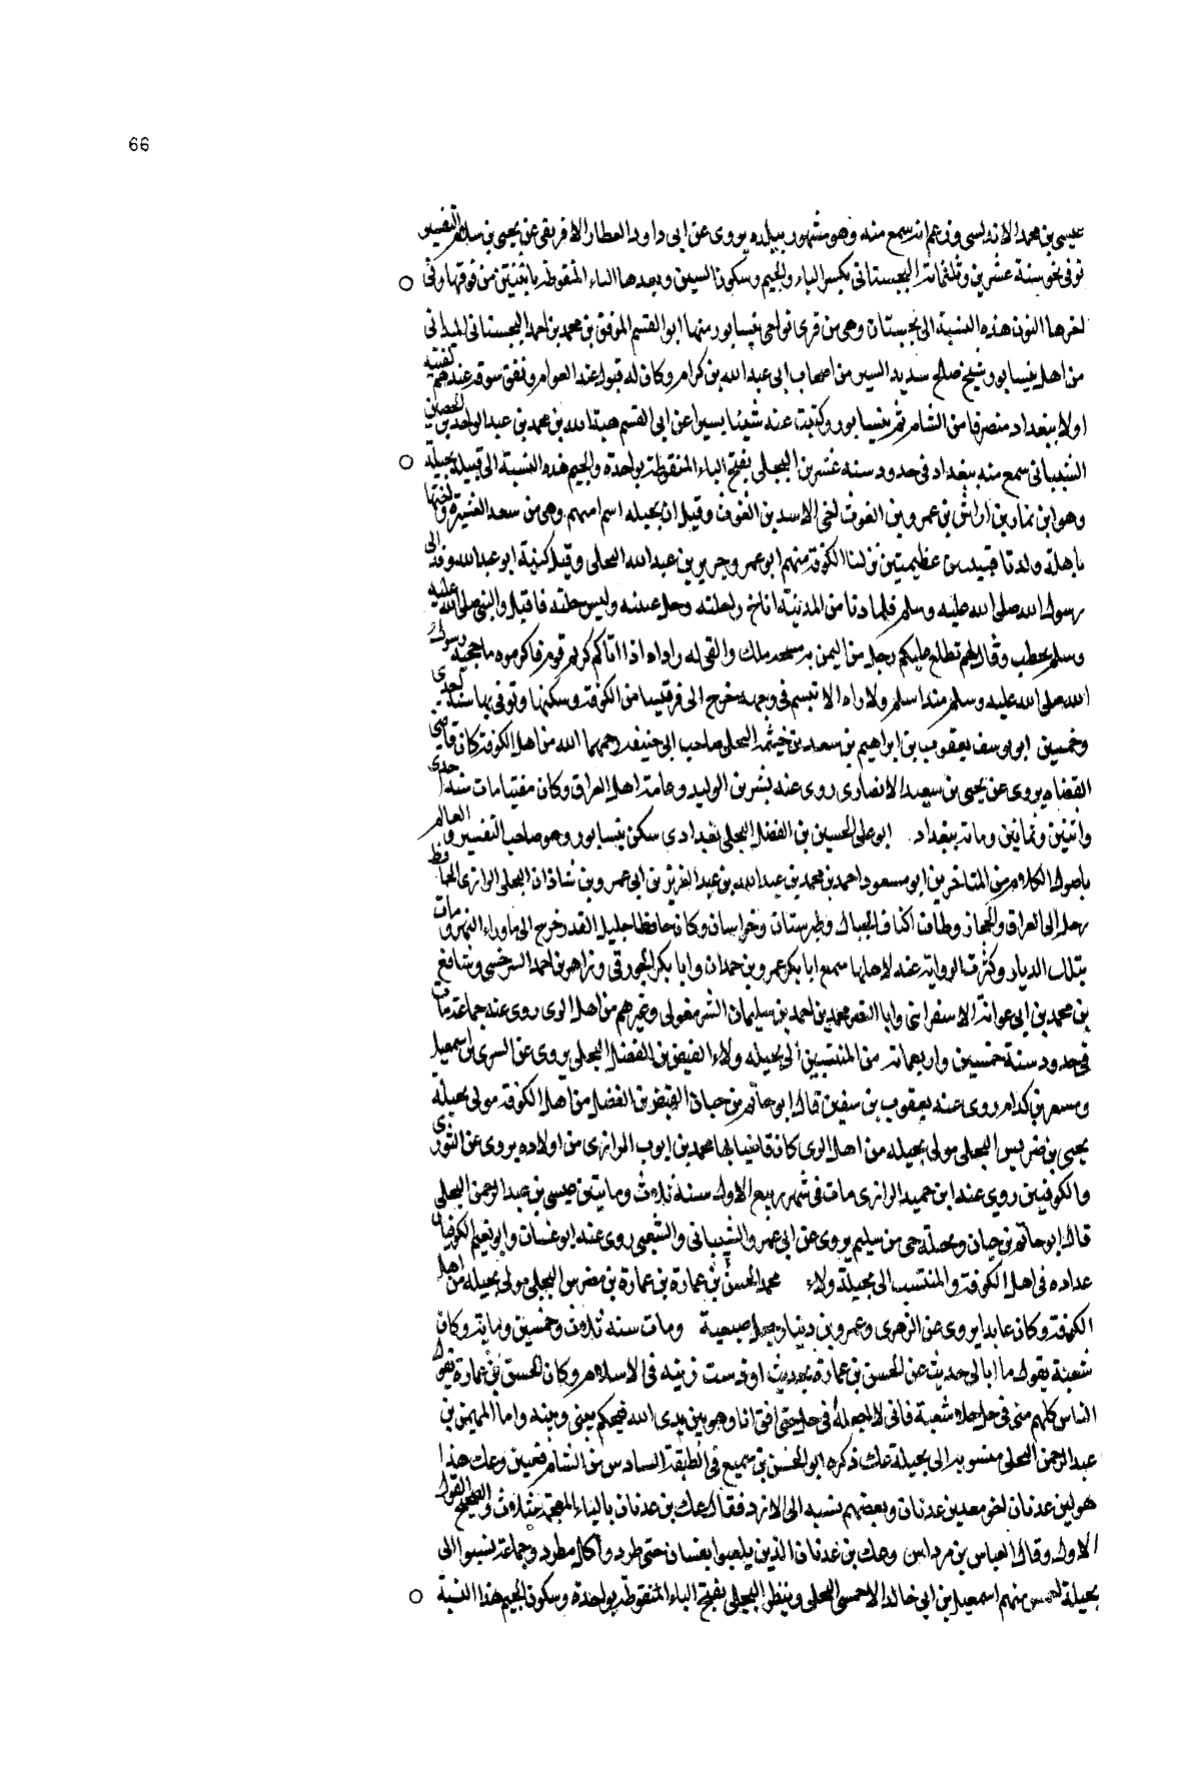 66
عيسى بن محمد الاندلسى وزعم انه سمع منه وهو مشهور ببلده يروى عن ابى داود العطار الافريقى عن يحيى بن سلام التفسير
توفى نحو سنة عشرين وثلثمائة البجستانى بكسر الباء والجيم وسكون السين وبعدها التاء المنقوطة باثنتين من فوقها وفى
اخرها النون هذه النسبة الى بجستان وهى من قرى نواحى نيسابور منها ابو القسم الموفق بن محمد بن احمد البجستانى الميدانى
من اهل نيسابور شيخ صالح سديد السير من اصحاب ابى عبد الله بن كرام وكان له قبول عند العوام ونفق سوقه عندهم لقيته
اولا ببغداد منصرفا من الشام ثم بنيسابور وكتبت عنه شيئا يسيرا عن ابى القسم هبة الله بن محمد بن عبد الواحد بن الحصين
الشيبانى سمع منه ببغداد فى حدود سنة عشرين البجلى بفتح الباء المنقوطة بواحدة والجيم هذه النسبة الى قبيلة بجيلة
وهو ابن نمار بن اراش بن عمرو بن الغوث اخى الاسد بن الغوث وقيل ان بجيله اسم امهم وهى من سعد العشيرة واختها
باهلة ولدتا قبيلتين عظيمتين نزلتا الكوفة منهم ابو عمرو جرير بن عبد الله البجلى وقيل كنيته ابو عبد الله وفد الى
رسول الله صلى الله عليه وسلم فلما دنا من المدينة اناخ راحلته وحل عيبته ولبس حلته فاقبل والنبى صلى الله عليه
وسلم يخطب وقال لهم تطلع عليكم رجل من اليمن به مسحة ملك والقى له رداه اذا اتاكم كريم قوم فاكرموه ما حجبه رسول
الله صلى الله عليه وسلم منذ اسلم ولا راه الا تبسم فى وجهه خرج الى قرقيسيا من الكوفة وسكنها وتوفى بها سنة احدى
وخمسين ابو يوسف يعقوب بن ابراهيم بن سعد بن خيثمه البجلى صاحب ابى حنيفه رحمهما الله من اهل الكوفة كان قاضى
القضاه يروى عن يحيى بن سعيد الانصارى روى عنه بشر بن الوليد وعامة اهل العراق وكان مفتيا مات سنة احدى
واثنين وثمانين ومائة ببغداد. ابو على الحسين بن الفضل البجلى بغدادى سكن نيسابور وهو صاحب التفسير والعالم
باصول الكلام من المتاخرين ابو مسعود احمد بن محمد بن عبد الله بن عبد العزيز بن ابى عمرو بن شاذان البجلى الرازى الحافظ
رحل الى العراق والحجاز وطاف اكناف الجبال وطبرستان وخراسان وكان حافظا جليل القدر خرج الى ماوراء النهر ومات
بتلك الديار وكثرت الرواية عنه لاهلها سمع ابا بكر عمرو بن حمدان وابا بكر الجورقى وزاهر بن احمد السرخسى وشافع
بن محمد بن ابى عوانة الاسفراينى وابا النضر محمد بن احمد بن سليمان الشرمغولى وغيرهم من اهل الرى روى عنه جماعة مات
فى حدود سنة خمسين واربعمائة من المنتسبين الى بجيله ولاء الفيض بن الفضل البجلى يروى عن السرى بن اسمعيل
ومسعر بن كدام روى عنه يعقوب بن سفين قال ابو حاتم بن حبان الفيض بن الفضل من اهل الكوفة مولى بجيلة
يحيى بن ضريس البجلى مولى بجيله من اهل الرى كان قاضيا بها محمد بن ايوب الرازى من اولاده يروى عن الثورى
والكوفيين روى عنه ابن حميد الرازى مات فى شهر ربيع الاول سنة ثلاث ومايتين عيسى بن عبد الرحمن البجلى
قال ابو حاتم بن حبان وبجلة حى من سليم يروى عن ابى عمرو الشيبانى والشعبى روى عنه ابو غسان وابو نعيم الكوفيان
عداده فى اهل الكوفة والمنتسب الى بجيلة ولاء محمد الحسن بن عمارة بن عمارة بن مضرس البجلى مولى بجيله من اهل
الكوفة وكان عابدا يروى عن الزهرى وعمرو بن دينار ومات سنه ثلاث وخمسين وماية وكان
شعبة يقول ما ابالى حديث عن الحسن بن عمارة بحديث او فى الاسلام وكان الحسن بن عمارة يقول
الناس كلهم منى فى حل خلا شعبة فانى لا اجعله فى حل حتى اقف انا وهو بين يدى الله فيحكم بينى وبينه واما المهيمن بن
عبد الرحمن البجلى منسوبه الى بجيلة عك ذكره ابو الحسن بن سميع فى الطبقة السادس من الشام قميين وعك هذا
هو ابن عدنان اخو معد بن عدنان وبعضهم نسبه الى الازد فقال عك بن عدنان بالثاء المعجمة بثلاث والصحيح القول
الاول وقال العباس بن مرداس وعك بن عدنان الذين تلعبوا بغسان حتى طردوا كل مطرد وجماعة نسبوا الى
بجيلة احمس منهم اسمعيل بن ابى خالد الاحمسى البجلى وينظر البجلى بفتح الباء المنقوطة بواحدة وسكون الجيم هذا النسبة